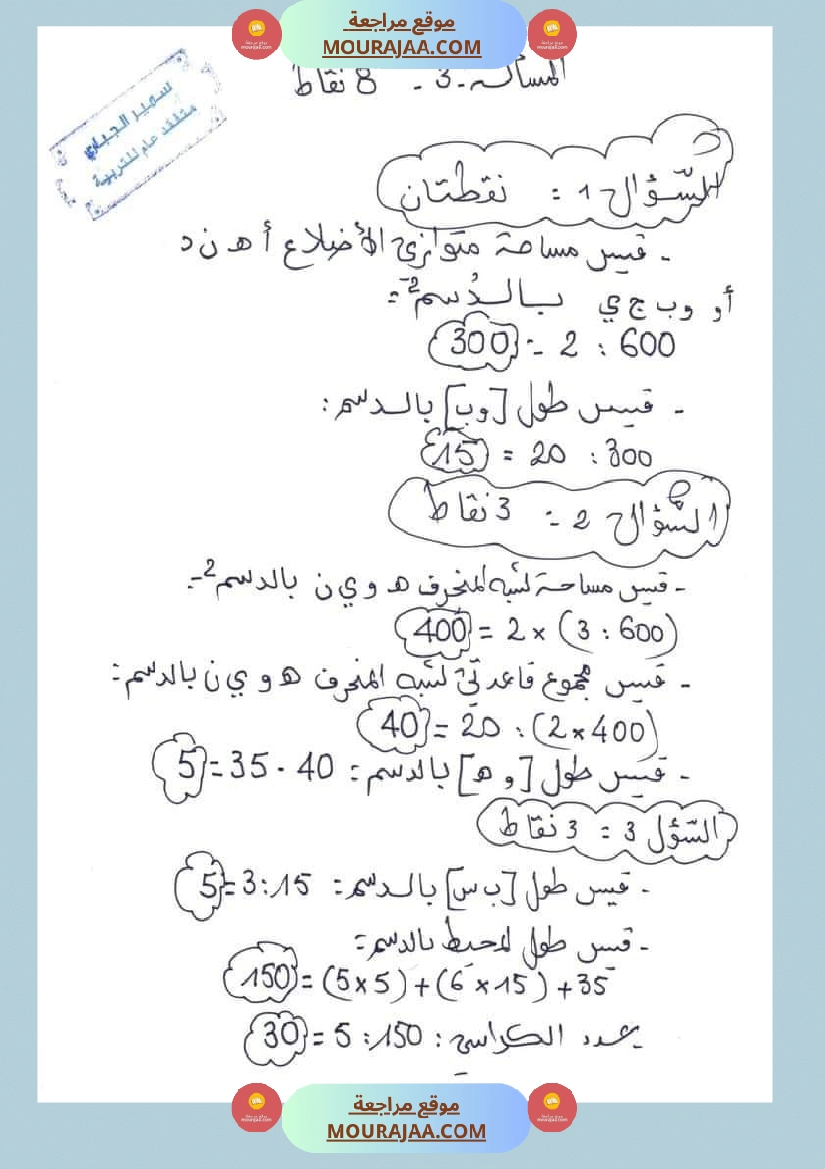 موقع مراجعة
MOURAJAA.COM
المسألة - 3 - 8 نقاط
سمير الجباري
متفقد عام للتربية
السّؤال 1 : نقطتان
- قيس مساحة متوازي الأضلاع أ ه ن د
أو و ب ج ي بالدسم2 :
600 : 2 = 300
- قيس طول [و ب] بالدسم :
300 : 20 = 15
السّؤال 2 : 3 نقاط
- قيس مساحة شبه المنحرف ه و ي ن بالدسم2 :
(600 : 3) × 2 = 400
- قيس مجموع قاعدتي شبه المنحرف ه و ي ن بالدسم :
(400 × 2) : 20 = 40
- قيس طول [و ه] بالدسم : 40 - 35 = 5
السّؤل 3 : 3 نقاط
- قيس طول [ب س] بالدسم : 15 : 3 = 5
- قيس طول المحيط بالدسم :
35 + (15 × 6) + (5 × 5) = 150
عدد الكراسي : 150 : 5 = 30
موقع مراجعة
MOURAJAA.COM